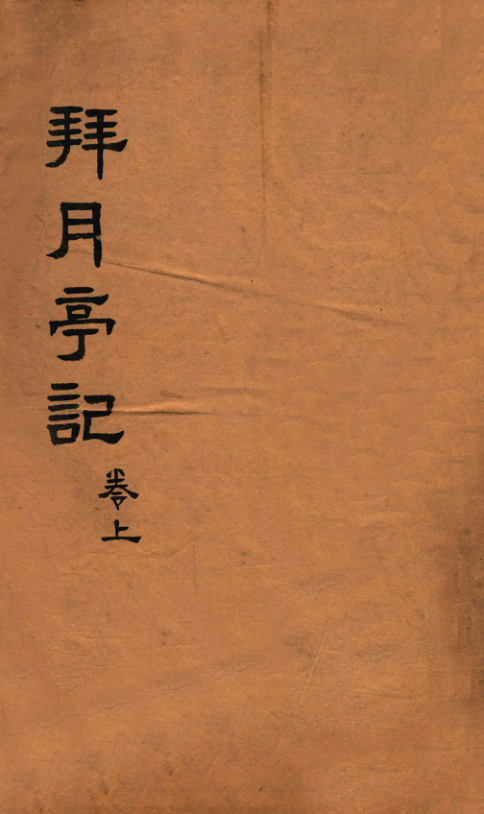 拜月亭記
卷上